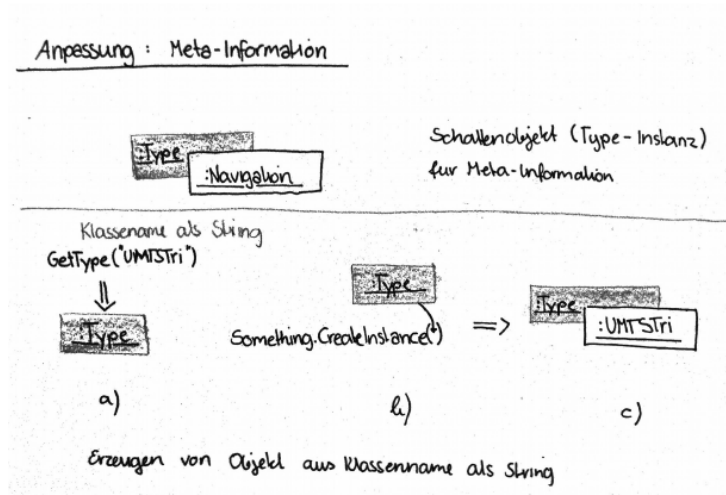 Anpassung : Meta-Information
:Type
:Navigation
Schattenobjekt (Type-Instanz)
für Meta-Information
Klassenname als String
GetType("UMTSTri")
:Type
a)
:Type
Something.CreateInstance( )
b)
=>
:Type
:UMTSTri
c)
Erzeugen von Objekt aus Klassenname als String